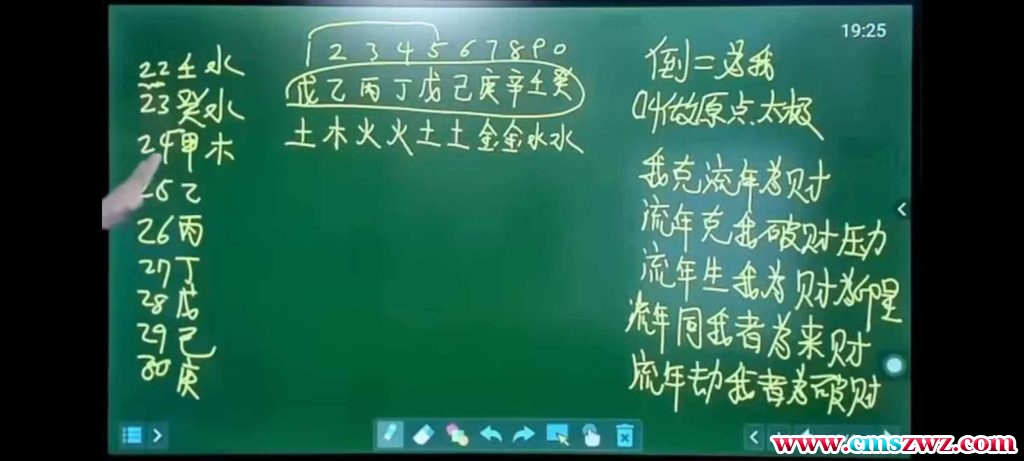 19:25
22壬水
23癸水
24甲木
25乙
26丙
27丁
28戊
29己
30庚
1 2 3 4 5 6 7 8 9 0
戊乙丙丁戊己庚辛壬癸
土木火火土土金金水水
倒二为我
叫做原点太极
我克流年为财
流年克我破财压力
流年生我为财为印星
流年同我者为来财
流年劫我者为破财
www.cmszwz.com